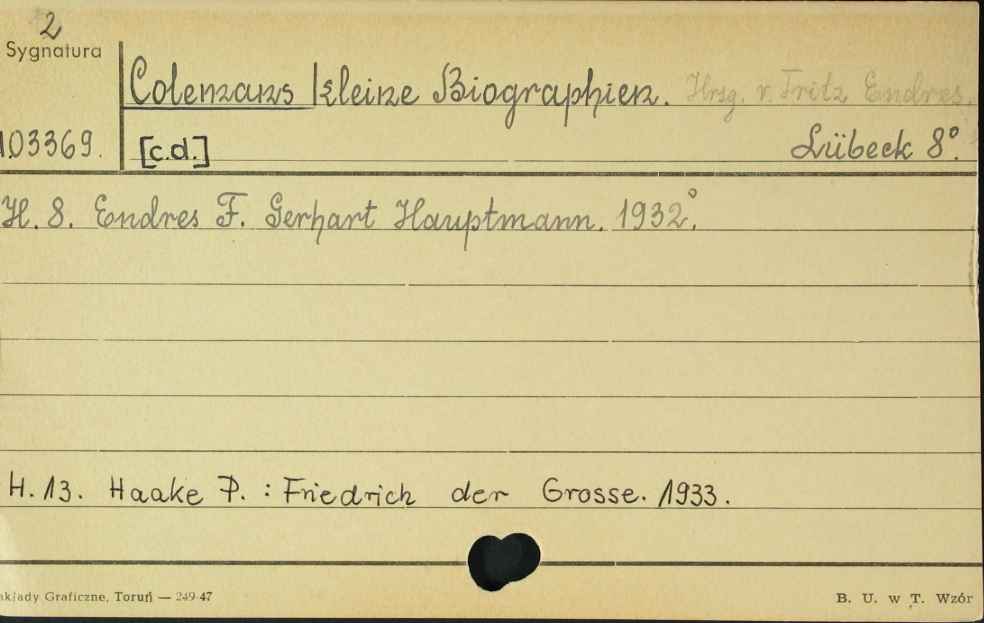 2
Sygnatura
Colemans kleine Biographien. Hrsg. v. Fritz Endres.
103369. [c.d.] Lübeck 8°.
H. 8. Endres F. Gerhart Hauptmann. 1932.°
H. 13. Haake P. : Friedrich der Grosse. 1933.
akłady Graficzne, Toruń — 249-47 B. U. w T. Wzór